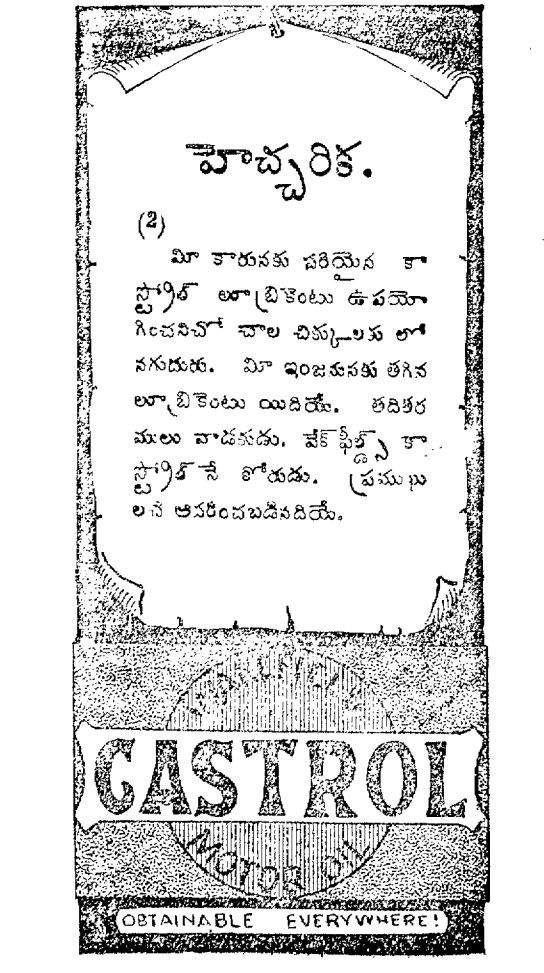 హెచ్చరిక.
(2)
మీ కారునకు సరియైన కా
స్ట్రోల్ లూబ్రికెంటు ఉపయో
గించనిచో చాల చిక్కులకు లో
నగుదురు. మీ ఇంజనునకు తగిన
లూబ్రికెంటు యిదియే. తదితర
ములు వాడకుడు. వేక్‌ఫీల్డ్స్ కా
స్ట్రోల్ నే కోరుడు. ప్రముఖు
లచే ఆదరించబడినదియే.
WAKEFIELD
CASTROL
MOTOR OIL
OBTAINABLE EVERYWHERE!